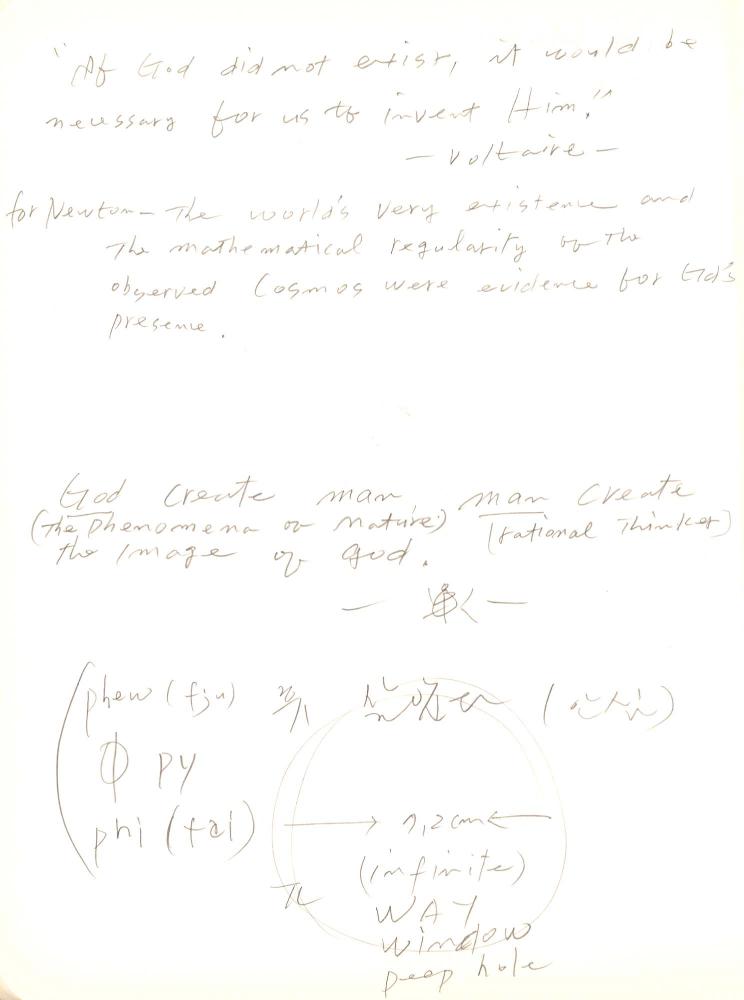 "If God did not exist, it would be
necessary for us to invent Him."
— Voltaire —
for Newton — The world's very existence and
The mathematical regularity of The
observed Cosmos were evidence for God's
presence.
God create man, man create
(The Phenomena or Nature) (rational Thinker)
the Image of God.
phew (fju) 휴
Φ py
phi (fai) → 7,2cm ←
(infinite)
π
WAY
window
peep hole